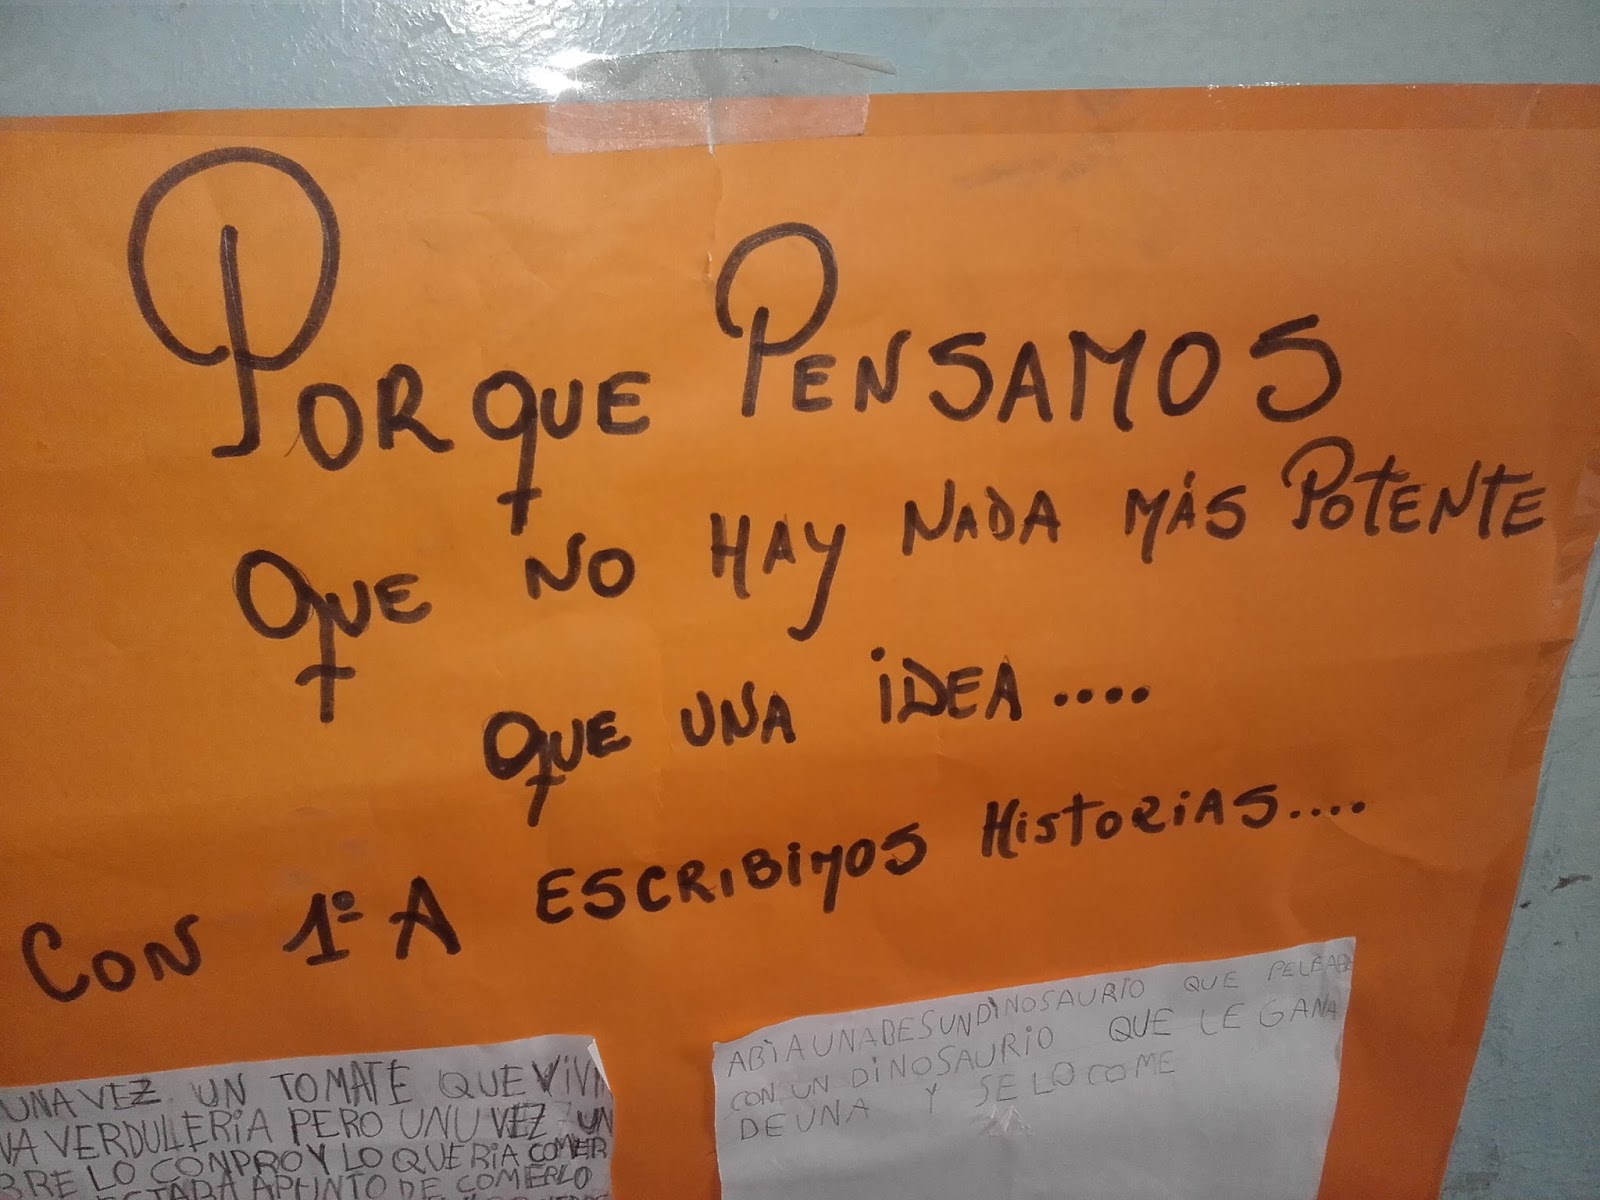 PORQUE PENSAMOS
QUE NO HAY NADA MÁS POTENTE
QUE UNA IDEA....
CON 1º A ESCRIBIMOS HISTORIAS....
UNA VEZ UN TOMATE QUE VIVI
NA VERDULLERIA PERO UNU VEZ UN
BRE LO CONPRO Y LO QUERIA COMER
ESTABA APUNTO DE COMERLO
ABIA UNA BES UN DINOSAURIO QUE PELEABA
CON UN DINOSAURIO QUE LE GANA
DE UNA Y SE LO COME